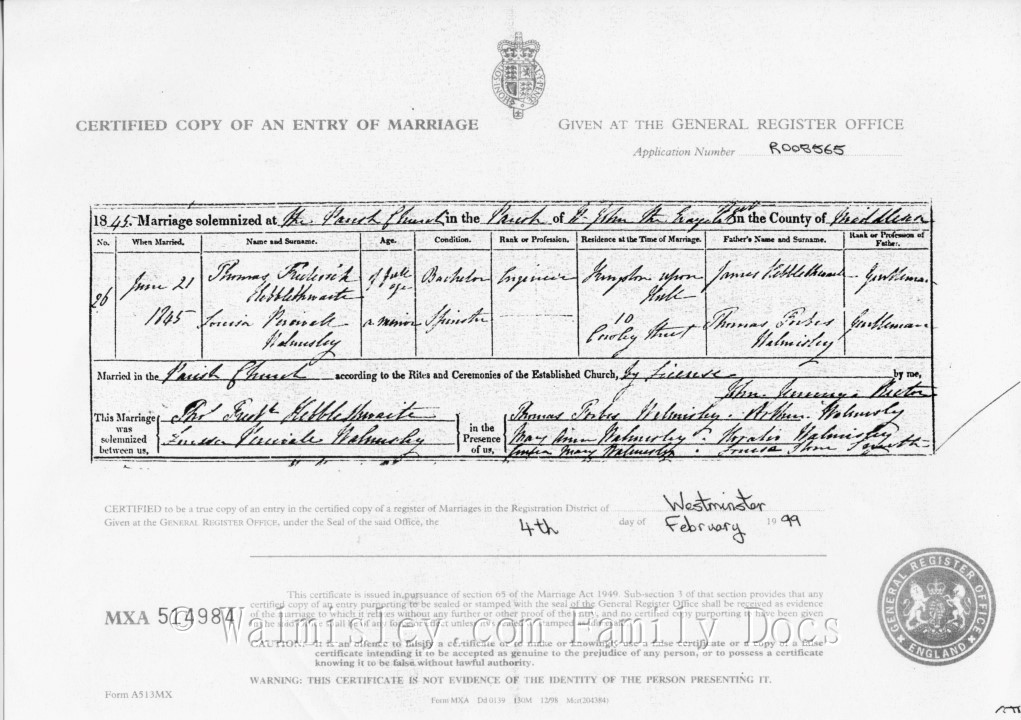 CERTIFIED COPY OF AN ENTRY OF MARRIAGE
GIVEN AT THE GENERAL REGISTER OFFICE
Application Number R005565
1845. Marriage solemnized at the Parish Church in the Parish of St John the in the County of Middlesex
No. When Married. Name and Surname. Age. Condition. Rank or Profession. Residence at the Time of Marriage. Father's Name and Surname. Rank or Profession of Father.
26 June 21 1845
Thomas Frederick Hebblethwaite of full age Bachelor Engineer Kingston upon Hull James Hebblethwaite Gentleman
Louisa Walmisley a minor Spinster ——— 10 Cowley Street Thomas Forbes Walmisley Gentleman
Married in the Parish Church according to the Rites and Ceremonies of the Established Church, by License by me,
John Jennings Rector
This Marriage was solemnized between us,
Thos Fredk Hebblethwaite
Louisa Walmisley
in the Presence of us,
Thomas Forbes Walmisley. Arthur Walmisley
Mary Ann Walmisley. Horatio Walmisley
Mary Walmisley. Louisa
CERTIFIED to be a true copy of an entry in the certified copy of a register of Marriages in the Registration District of Westminster
Given at the GENERAL REGISTER OFFICE, under the Seal of the said Office, the 4th day of February 1999
MXA 514984
This certificate is issued in pursuance of section 65 of the Marriage Act 1949. Sub-section 3 of that section provides that any
certified copy of an entry purporting to be sealed or stamped with the seal of the General Register Office shall be received as evidence
of the marriage to which it relates without any further or other proof of the entry, and no certified copy purporting to have been given
in the said Office shall be of any force or effect unless it is sealed or stamped as aforesaid.
© Walmisley.com Family Docs
CAUTION:- It is an offence to falsify a certificate or to make or knowingly use a false certificate or a copy of a false
certificate intending it to be accepted as genuine to the prejudice of any person, or to possess a certificate
knowing it to be false without lawful authority.
WARNING: THIS CERTIFICATE IS NOT EVIDENCE OF THE IDENTITY OF THE PERSON PRESENTING IT.
GENERAL REGISTER OFFICE
ENGLAND
Form A513MX
Form MXA Dd 0139 150M 12/98 Mcr(204384)